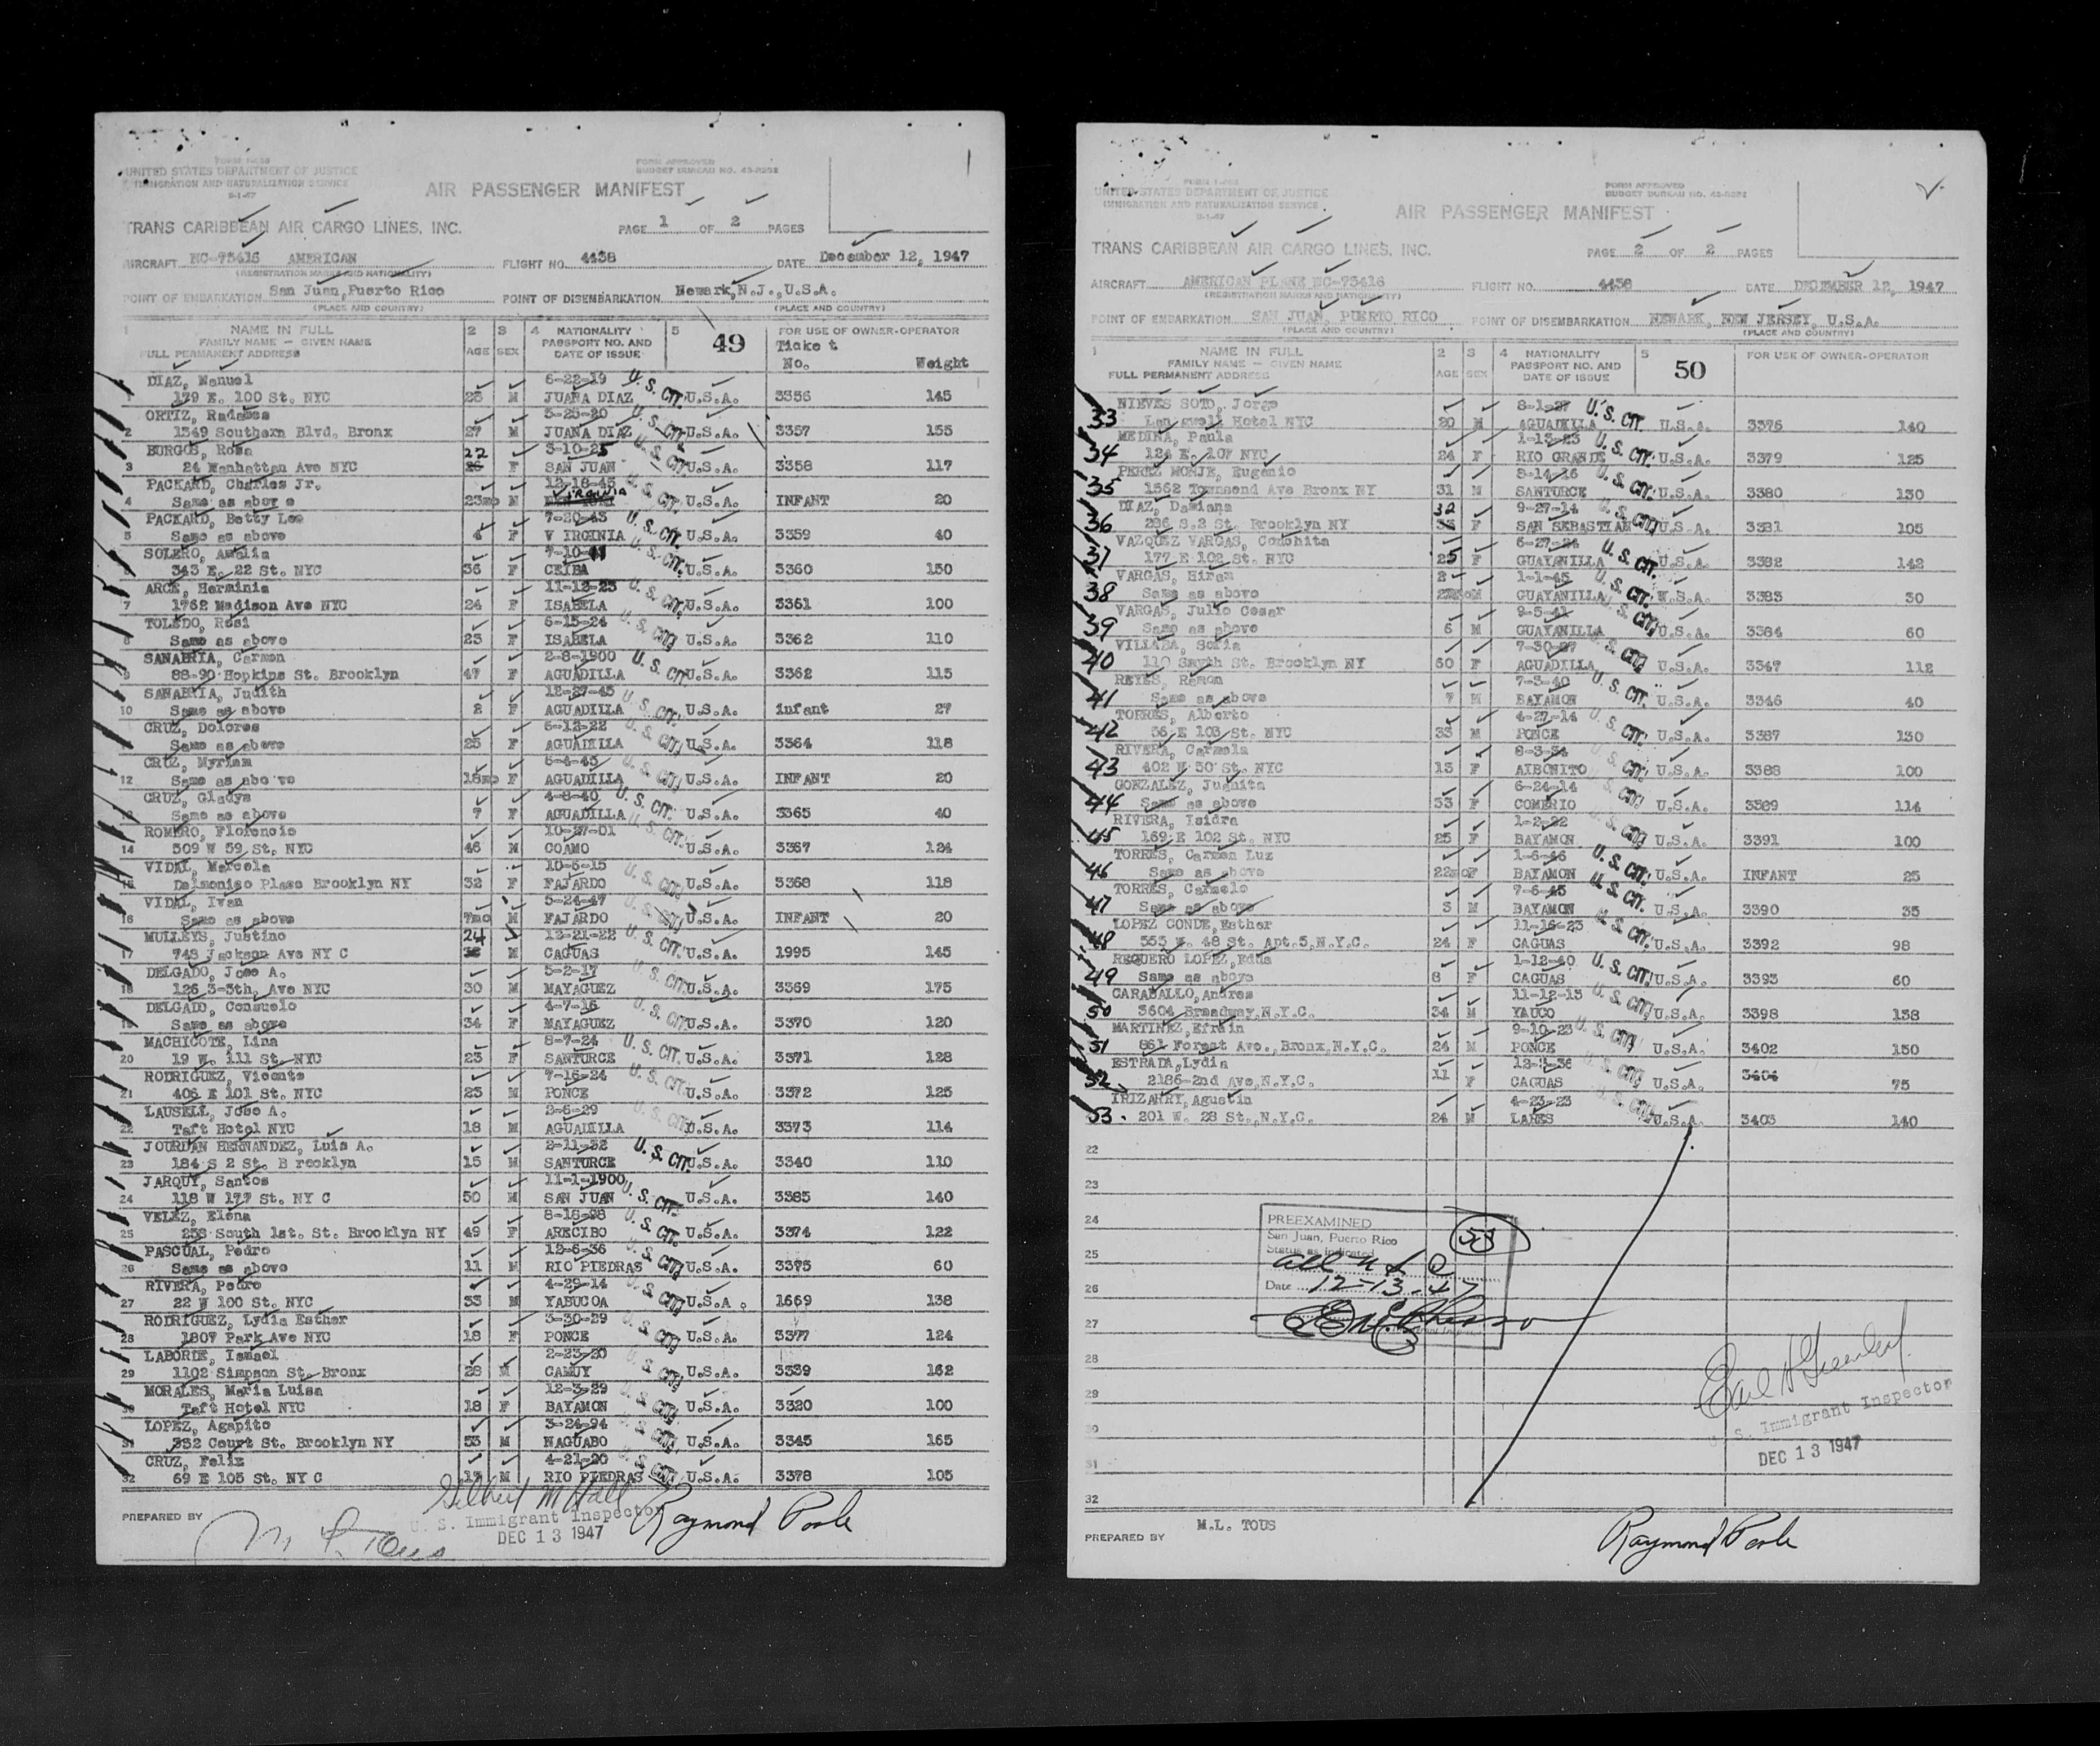 FORM I-466
UNITED STATES DEPARTMENT OF JUSTICE
IMMIGRATION AND NATURALIZATION SERVICE
9-1-47
FORM APPROVED
BUDGET BUREAU NO. 43-R232
AIR PASSENGER MANIFEST
TRANS CARIBBEAN AIR CARGO LINES, INC.
PAGE 1 OF 2 PAGES
AIRCRAFT NC-75416 AMERICAN FLIGHT NO. 4438 DATE December 12, 1947
(REGISTRATION MARKS AND NATIONALITY)
POINT OF EMBARKATION San Juan, Puerto Rico POINT OF DISEMBARKATION Newark, N.J., U.S.A.
(PLACE AND COUNTRY) (PLACE AND COUNTRY)
1 NAME IN FULL 2 3 4 NATIONALITY 5 49 FOR USE OF OWNER-OPERATOR
FAMILY NAME — GIVEN NAME AGE SEX PASSPORT NO. AND Ticket
FULL PERMANENT ADDRESS DATE OF ISSUE No. Weight
DIAZ, Manuel 6-22-19 U. S. CIT.
1 179 E. 100 St. NYC 28 M JUANA DIAZ U.S.A. 3356 145
ORTIZ, Radames 3-25-20 U. S. CIT.
2 1349 Southern Blvd, Bronx 27 M JUANA DIAZ U.S.A. 3357 155
BURGOS, Rosa 22 3-10-25 U. S. CIT.
3 24 Manhattan Ave NYC 26 F SAN JUAN U.S.A. 3358 117
PACKARD, Charles Jr. 12-18-45 VIRGINIA U. S. CIT.
4 Same as above 23mo M U.S.A. INFANT 20
PACKARD, Betty Lee 7-20-43 U. S. CIT.
5 Same as above 4 F VIRGINIA U.S.A. 3359 40
SOLERO, Amelia 7-10-11 U. S. CIT.
343 E. 22 St. NYC 36 F CEIBA U.S.A. 3360 150
ARCE, Herminia 11-12-23 U. S. CIT.
7 1762 Madison Ave NYC 24 F ISABELA U.S.A. 3361 100
TOLEDO, Rosi 6-15-24 U. S. CIT.
8 Same as above 23 F ISABELA U.S.A. 3362 110
SANABRIA, Carmen 2-8-1900 U. S. CIT.
9 88-90 Hopkins St. Brooklyn 47 F AGUADILLA U.S.A. 3362 115
SANABRIA, Judith 12-27-45 U. S. CIT.
10 Same as above 2 F AGUADILLA U.S.A. infant 27
CRUZ, Dolores 6-12-22 U. S. CIT.
Same as above 25 F AGUADILLA U.S.A. 3364 118
CRUZ, Myriam 6-4-45 U. S. CIT.
12 Same as above 18mo F AGUADILLA U.S.A. INFANT 20
CRUZ, Gladys 4-8-40 U. S. CIT.
Same as above 7 F AGUADILLA U.S.A. 3365 40
ROMERO, Florencio 10-27-01 U. S. CIT.
14 509 W 59 St. NYC 46 M COAMO U.S.A. 3367 124
VIDAL, Marcela 10-6-15
15 Delmonico Place Brooklyn NY 32 F FAJARDO U. S. CIT. U.S.A. 3368 118
VIDAL, Ivan 5-24-47
16 Same as above 7mo M FAJARDO U. S. CIT. U.S.A. INFANT 20
MULLEYS, Justino 24 12-21-22 U. S. CIT.
17 748 Jackson Ave NY C M CAGUAS U.S.A. 1995 145
DELGADO, Jose A. 5-2-17
18 126 3-3th, Ave NYC 30 M MAYAGUEZ U. S. CIT. U.S.A. 3369 175
DELGADO, Consuelo 4-7-16
19 Same as above 34 F MAYAGUEZ U. S. CIT. U.S.A. 3370 120
MACHICOTE, Lina 8-7-24
20 19 W. 111 St. NYC 23 F SANTURCE U. S. CIT. U.S.A. 3371 128
RODRIGUEZ, Vicente 7-16-24
21 406 E 101 St. NYC 23 M PONCE U. S. CIT. U.S.A. 3372 125
LAUSELL, Jose A. 2-6-29
22 Taft Hotel NYC 18 M AGUADILLA U. S. CIT. U.S.A. 3373 114
JOURDAN HERNANDEZ, Luis A. 2-11-32
23 184 S 2 St. B rooklyn 15 M SANTURCE U. S. CIT. U.S.A. 3340 110
JARQUY, Santos 11-1-1900
24 118 W 177 St. NY C 50 M SAN JUAN U. S. CIT. U.S.A. 3385 140
VELEZ, Elena 8-16-98
25 258 South 1st. St. Brooklyn NY 49 F ARECIBO U. S. CIT. U.S.A. 3374 122
PASCUAL, Pedro 12-6-36
26 Same as above 11 M RIO PIEDRAS U. S. CIT. U.S.A. 3375 60
RIVERA, Pedro 4-29-14
27 22 W 100 St. NYC 33 M YABUCOA U. S. CIT. U.S.A. 1669 138
RODRIGUEZ, Lydia Esther 3-30-29
28 1807 Park Ave NYC 18 F PONCE U. S. CIT. U.S.A. 3377 124
LABORDE, Ismael 2-23-20
29 1102 Simpson St. Bronx 28 M CAMUY U. S. CIT. U.S.A. 3339 162
MORALES, Maria Luisa 12-3-29
30 Taft Hotel NYC 18 F BAYAMON U. S. CIT. U.S.A. 3320 100
LOPEZ, Agapito 3-24-94
31 332 Court St. Brooklyn NY 53 M NAGUABO U. S. CIT. U.S.A. 3345 165
CRUZ, Felix 4-21-20
32 69 E 105 St. NY C 17 M RIO PIEDRAS U. S. CIT. U.S.A. 3378 105
Gilbert M Hall
U. S. Immigrant Inspector
DEC 13 1947
PREPARED BY M. L. Tous
Raymond Poole
UNITED STATES DEPARTMENT OF JUSTICE
IMMIGRATION AND NATURALIZATION SERVICE
9-1-47
FORM APPROVED
BUDGET BUREAU NO. 43-R232
AIR PASSENGER MANIFEST
TRANS CARIBBEAN AIR CARGO LINES, INC.
PAGE 2 OF 2 PAGES
AIRCRAFT AMERICAN PLANE NC-75416 FLIGHT NO. 4438 DATE DECEMBER 12, 1947
(REGISTRATION MARKS AND NATIONALITY)
POINT OF EMBARKATION SAN JUAN, PUERTO RICO POINT OF DISEMBARKATION NEWARK, NEW JERSEY, U.S.A.
(PLACE AND COUNTRY) (PLACE AND COUNTRY)
1 NAME IN FULL 2 3 4 NATIONALITY 5 50 FOR USE OF OWNER-OPERATOR
FAMILY NAME — GIVEN NAME AGE SEX PASSPORT NO. AND
FULL PERMANENT ADDRESS DATE OF ISSUE
NIEVES SOTO, Jorge 8-1-27 U. S. CIT.
33 Langwell Hotel NYC 20 M AGUADILLA U.S.A. 3376 140
MEDINA, Paula 1-13-23 U. S. CIT.
34 124 E. 107 NYC 24 F RIO GRANDE U.S.A. 3379 125
PEREZ MONJE, Eugenio 8-14-16 U. S. CIT.
35 1562 Townsend Ave Bronx NY 31 M SANTURCE U.S.A. 3380 130
DIAZ, Damiana 32 9-27-14 U. S. CIT.
36 286 S.2 St. Brooklyn NY 33 F SAN SEBASTIAN U.S.A. 3381 105
VAZQUEZ VARGAS, Conchita 6-27-24 U. S. CIT.
37 177 E 102 St. NYC 25 F GUAYANILLA U.S.A. 3382 142
VARGAS, Hiram 2 1-1-45 U. S. CIT.
38 Same as above M GUAYANILLA U.S.A. 3383 30
VARGAS, Julio Cesar 9-5-41 U. S. CIT.
39 Same as above 6 M GUAYANILLA U.S.A. 3384 60
VILLABA, Sofia 7-30-87
40 110 Smyth St. Brooklyn NY 60 F AGUADILLA U. S. CIT. U.S.A. 3347 112
REYES, Ramon 7-3-40
41 Same as above 7 M BAYAMON U. S. CIT. U.S.A. 3346 40
TORRES, Alberto 4-27-14
42 56 E 103 St. NYC 33 M PONCE U. S. CIT. U.S.A. 3387 130
RIVERA, Carmela 8-3-34
43 402 W 30 St. NYC 13 F AIBONITO U. S. CIT. U.S.A. 3388 100
GONZALEZ, Juanita 6-24-14
44 Same as above 33 F COMERIO U. S. CIT. U.S.A. 3389 114
RIVERA, Isidra 1-2-22
45 169 E 102 St. NYC 25 F BAYAMON U. S. CIT. U.S.A. 3391 100
TORRES, Carmen Luz 1-6-46
46 Same as above 22mo F BAYAMON U. S. CIT. U.S.A. INFANT 25
TORRES, Carmelo 7-6-45
47 Same as above 3 M BAYAMON U. S. CIT. U.S.A. 3390 35
LOPEZ CONDE, Esther 11-16-23
48 555 W. 48 St. Apt.5, N.Y.C. 24 F CAGUAS U. S. CIT. U.S.A. 3392 98
REGUERO LOPEZ, Edna 1-12-40
49 Same as above 8 F CAGUAS U. S. CIT. U.S.A. 3393 60
CARABALLO, Andres 11-12-13
50 3604 Broadway, N.Y.C. 34 M YAUCO U. S. CIT. U.S.A. 3398 138
MARTINEZ, Efrain 9-10-23
51 861 Forest Ave., Bronx, N.Y.C. 24 M PONCE U. S. CIT. U.S.A. 3402 150
ESTRADA, Lydia 12-3-36
52 2186-2nd Ave, N.Y.C. 11 F CAGUAS U. S. CIT. U.S.A. 3404 75
IRIZARRY, Agustin 4-23-23
53. 201 W. 28 St., N.Y.C. 24 M LARES U. S. CIT. U.S.A. 3403 140
22
23
24
25
26
27
28
29
30
31
32
PREEXAMINED
San Juan, Puerto Rico
Status as indicated
53
all U S C
Date 12-13-47
U. S. Immigrant Inspector
DEC 13 1947
PREPARED BY M.L. TOUS
Raymond Poole